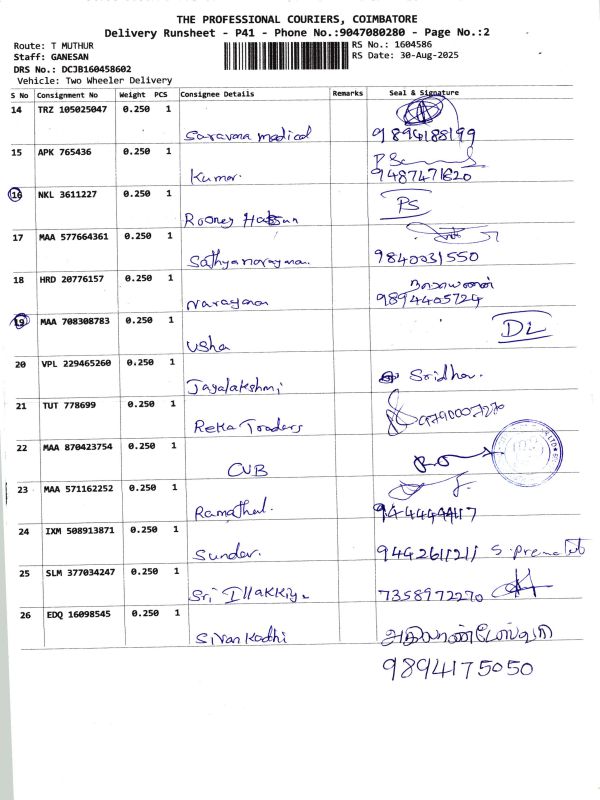 THE PROFESSIONAL COURIERS, COIMBATORE
Delivery Runsheet - P41 - Phone No.:9047080280 - Page No.:2
Route: T MUTHUR
RS No.: 1604586
Staff: GANESAN
RS Date: 30-Aug-2025
DRS No.: DCJB160458602
Vehicle: Two Wheeler Delivery
S No Consignment No Weight PCS Consignee Details Remarks Seal & Signature
14 TRZ 105025047 0.250 1
Saravana medical 9894188199
15 APK 765436 0.250 1
Kumar. 9487471620
16 NKL 3611227 0.250 1 PS
Rooney
17 MAA 577664361 0.250 1
Sathyanarayana. 9840031550
18 HRD 20776157 0.250 1 நாராயணன்
Narayana 9894405724
19 MAA 708308783 0.250 1 DL
Usha
20 VPL 229465260 0.250 1
Jayalakshmi Sridhar.
21 TUT 778699 0.250 1 9790007270
Reka Traders
22 MAA 870423754 0.250 1
CUB
23 MAA 571162252 0.250 1
Ramathal.
24 IXM 508913871 0.250 1
Sundar. 9442611211 S.
25 SLM 377034247 0.250 1
Sri Illakkiya 7358972270
26 EDQ 16098545 0.250 1
Sivankodhi
9894175050